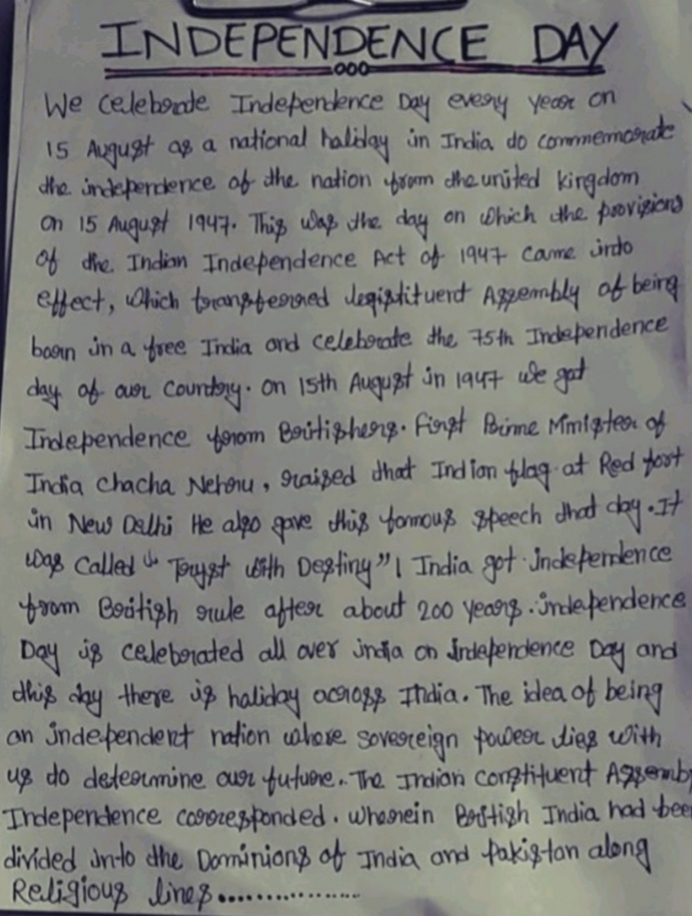 INDEPENDENCE DAY
We celebrate Independence Day every year on
15 August as a national haliday in India do commemorate
the independence of the nation from the united kingdom
on 15 August 1947. This was the day on which the provisions
of the Indian Independence Act of 1947 came into
effect, which transferred legistituent Assembly of being
born in a free India and celebrate the 75th Independence
day of our country. on 15th August in 1947 we got
Independence from Britishers. First Prime Mminister of
India chacha Nehru, raised that Indian flag at Red fort
in New Delhi He also gave this famous speech that day. It
was called " Tryst with Destiny" | India got independence
from British rule after about 200 years. independence
Day is celebrated all over india on Independence Day and
this day there is haliday across India. The idea of being
an independent nation whose sovereign power lies with
us do determine our future. The Indian constituent Assemb
Independence corresponded. wherein British India had bee
divided into the Dominions of India and pakistan along
Religious lines..................